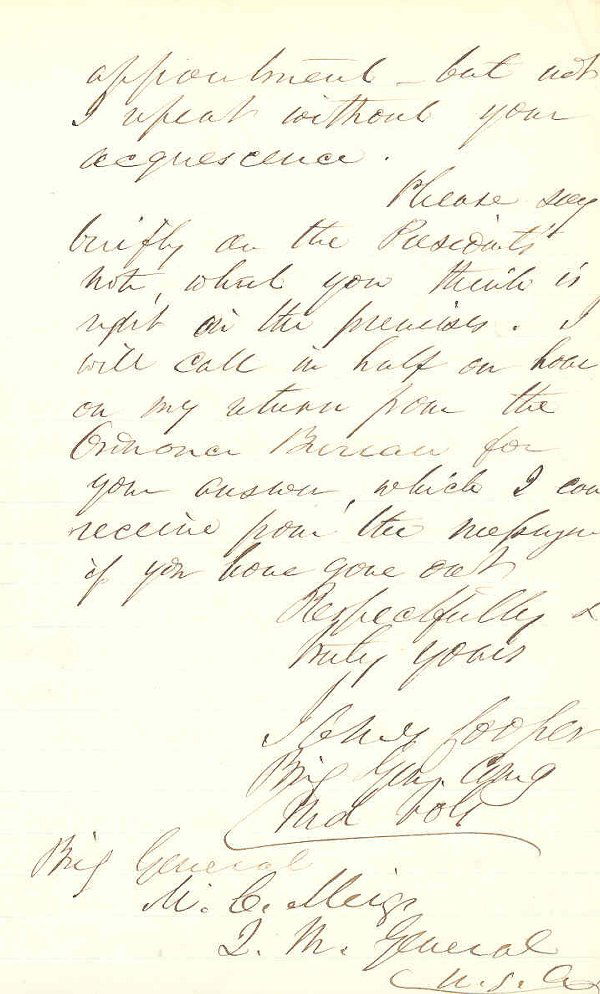 appointment - but not
I repeat without your
acquescence.
Please say
briefly on the Presidents
note, what you think is
right in the premises. I
will call in half an hour
on my return from the
Ordnance Bureau for
your answer, which I can
receive from the messenger
if you have gone out
Respectfully &
truly yours
James Cooper
Brig Genl Comg
Md Vols
Brig General
M. C. Meigs
Q. M. General
U. S. A.